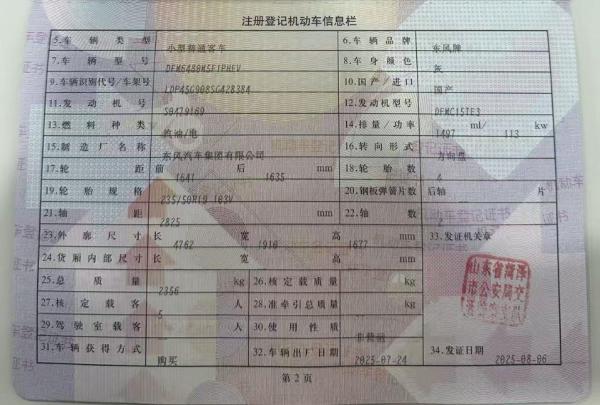 注册登记机动车信息栏
5.车辆类型 小型普通客车 6.车辆品牌 东风牌
7.车辆型号 DFM6480M5F1PHEV 8.车身颜色 灰
9.车辆识别代号/车架号 LDP45G908SG428384 10.国产/进口 国产
11.发动机号 S0479169 12.发动机型号 DFMC15TE3
13.燃料种类 汽油/电 14.排量/功率 1497 ml/ 113 kw
15.制造厂名称 东风汽车集团有限公司 16.转向形式 方向盘
17.轮距 前 1641 后 1635 mm 18.轮胎数 4
19.轮胎规格 235/50R19 103V 20.钢板弹簧片数 后轴 片
21.轴距 2825 mm 22.轴数 2
23.外廓尺寸 长 4762 宽 1910 高 1677 mm 33.发证机关章
24.货厢内部尺寸 长 宽 高 mm
25.总质量 2356 kg 26.核定载质量 kg
27.核定载客 5 人 28.准牵引总质量 kg
29.驾驶室载客 人 30.使用性质 非营运
31.车辆获得方式 购买 32.车辆出厂日期 2025-07-24 34.发证日期 2025-08-06
山东省菏泽
市公安局交
第2页